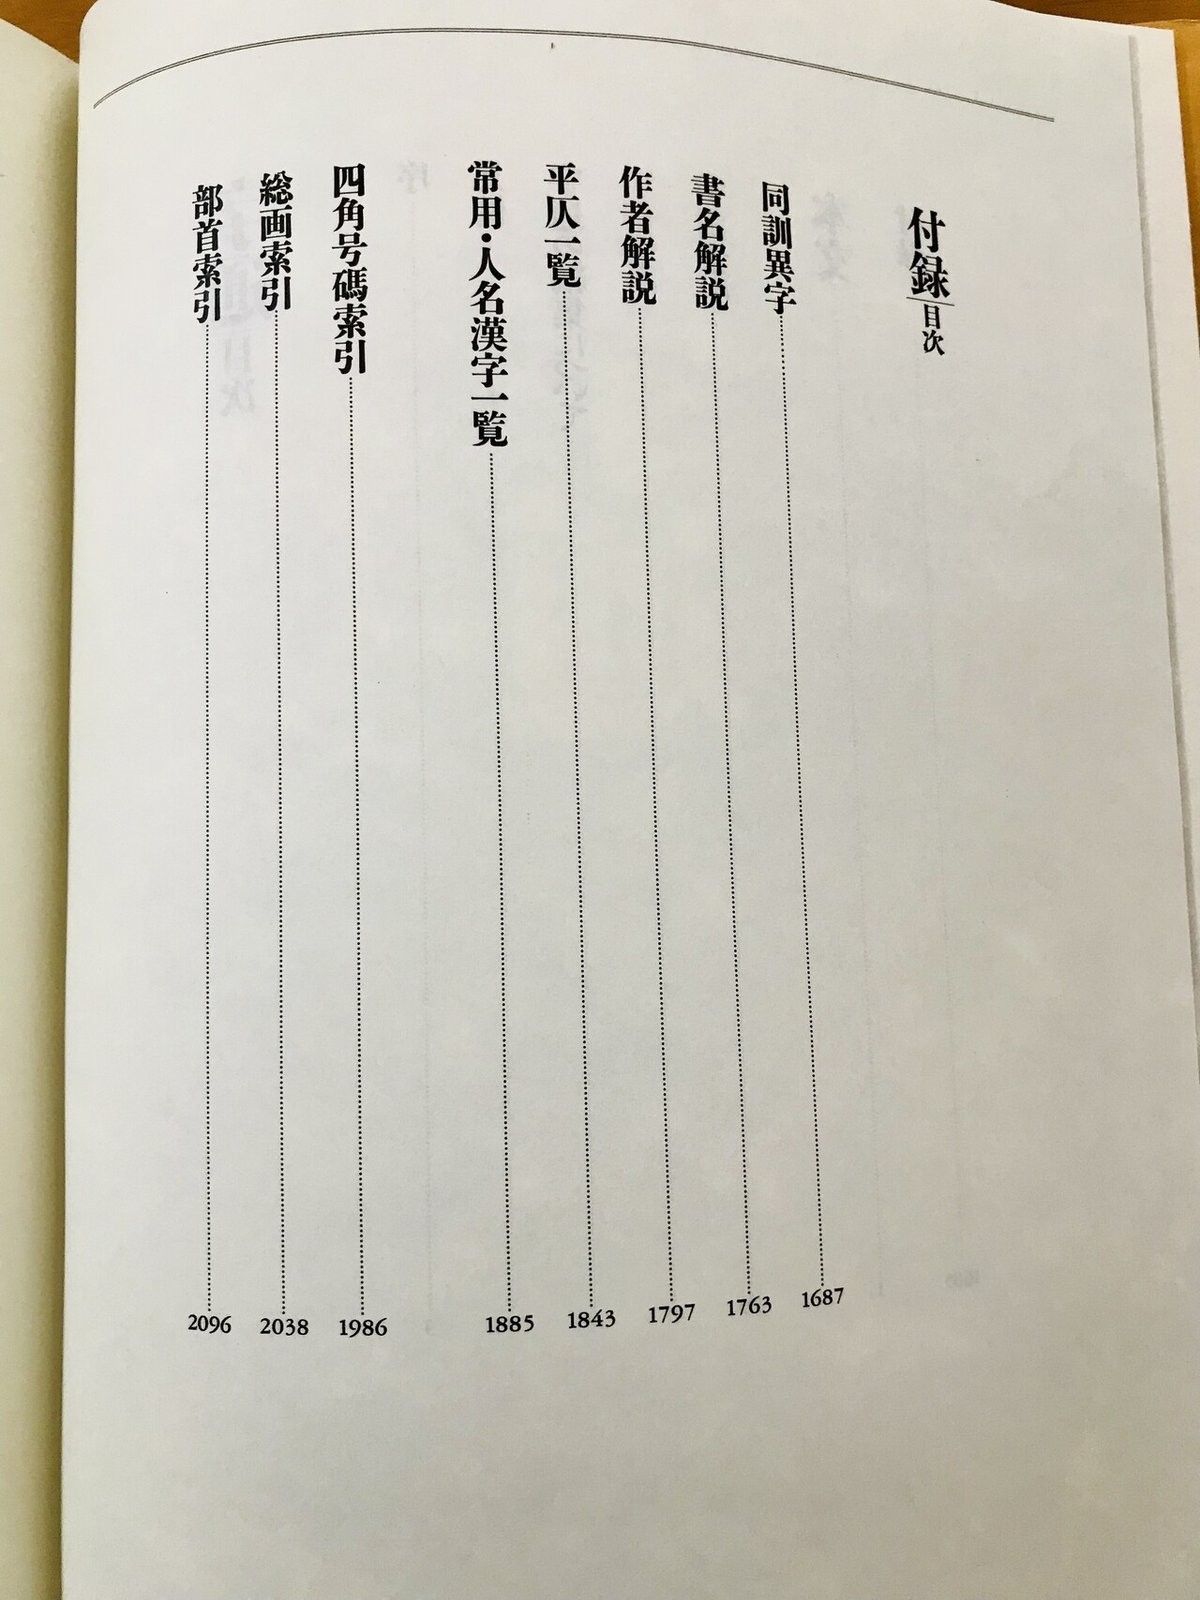 付録｜目次
同訓異字……1687
書名解説……1763
作者解説……1797
平仄一覧……1843
常用・人名漢字一覧……1885
四角号碼索引……1986
総画索引……2038
部首索引……2096